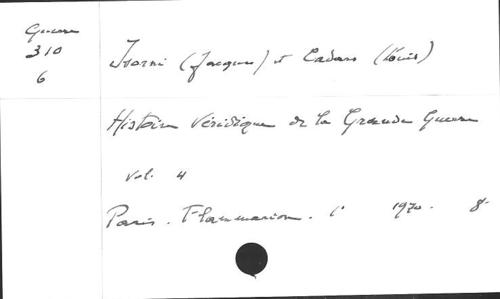 Guerre
310
6
Isorni (Jacques) et Cadars (Louis)
Histoire Véridique de la Grande Guerre
Vol. 4
Paris. Flammarion. 1970. 8°